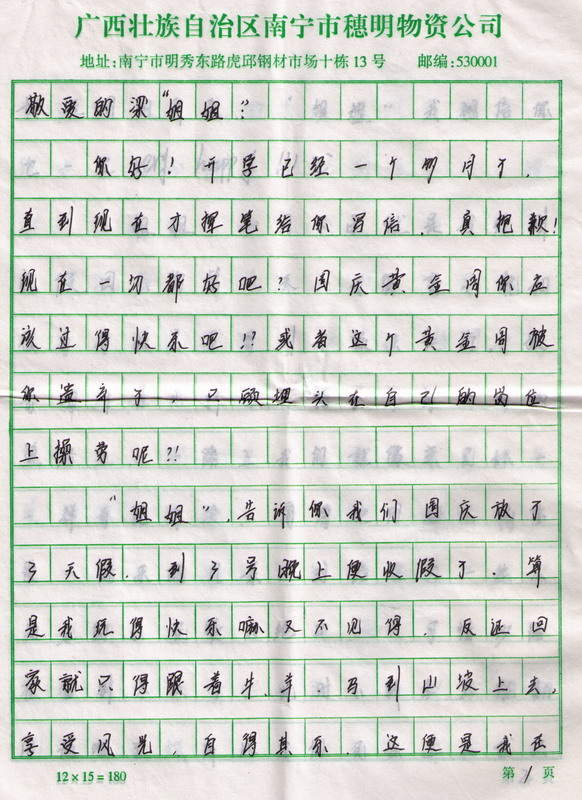 广西壮族自治区南宁市穗明物资公司
地址:南宁市明秀东路虎邱钢材市场十栋13号 邮编:530001
敬爱的梁“姐姐”:
你好!开学已经一个多月了,
直到现在才挥笔给你写信,真抱歉!
现在一切都好吧?国庆黄金周你应
该过得快乐吧!?或者这个黄金周被
你遗弃了,只顾埋头在自己的岗位
上操劳呢?!
“姐姐”,告诉你我们国庆放了
3天假,到3号晚上便收假了.算
是我玩得快乐嘛又不见得,反证回
家就只得跟着牛、羊、马到山坡上去,
享受风光,自得其乐.这便是我在
12×15=180 第1页